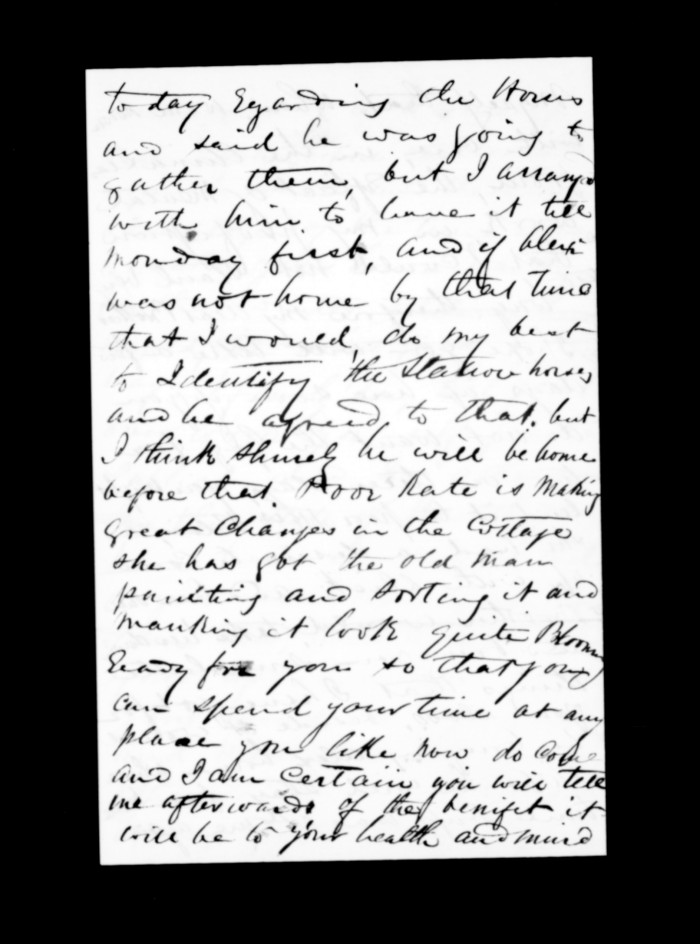 to day Egarding the Horses
and said he was going to
gather them, but I arranged
with him to leave it till
monday first, and if Alex
was not home by that time
that I would, do my best
to Identify the Station horses
and he agreed to that. but
I think shurely he will be home
before that. Poor Kate is making
great Changes in the Cottage
she has got the old man
painting and sorting it and
mauking it look quite Blooming
Ready for you so that you
can spend your time at any
place you like now do come
and I am certain you will tell
me afterwards of the benifit it
will be to your health and mind